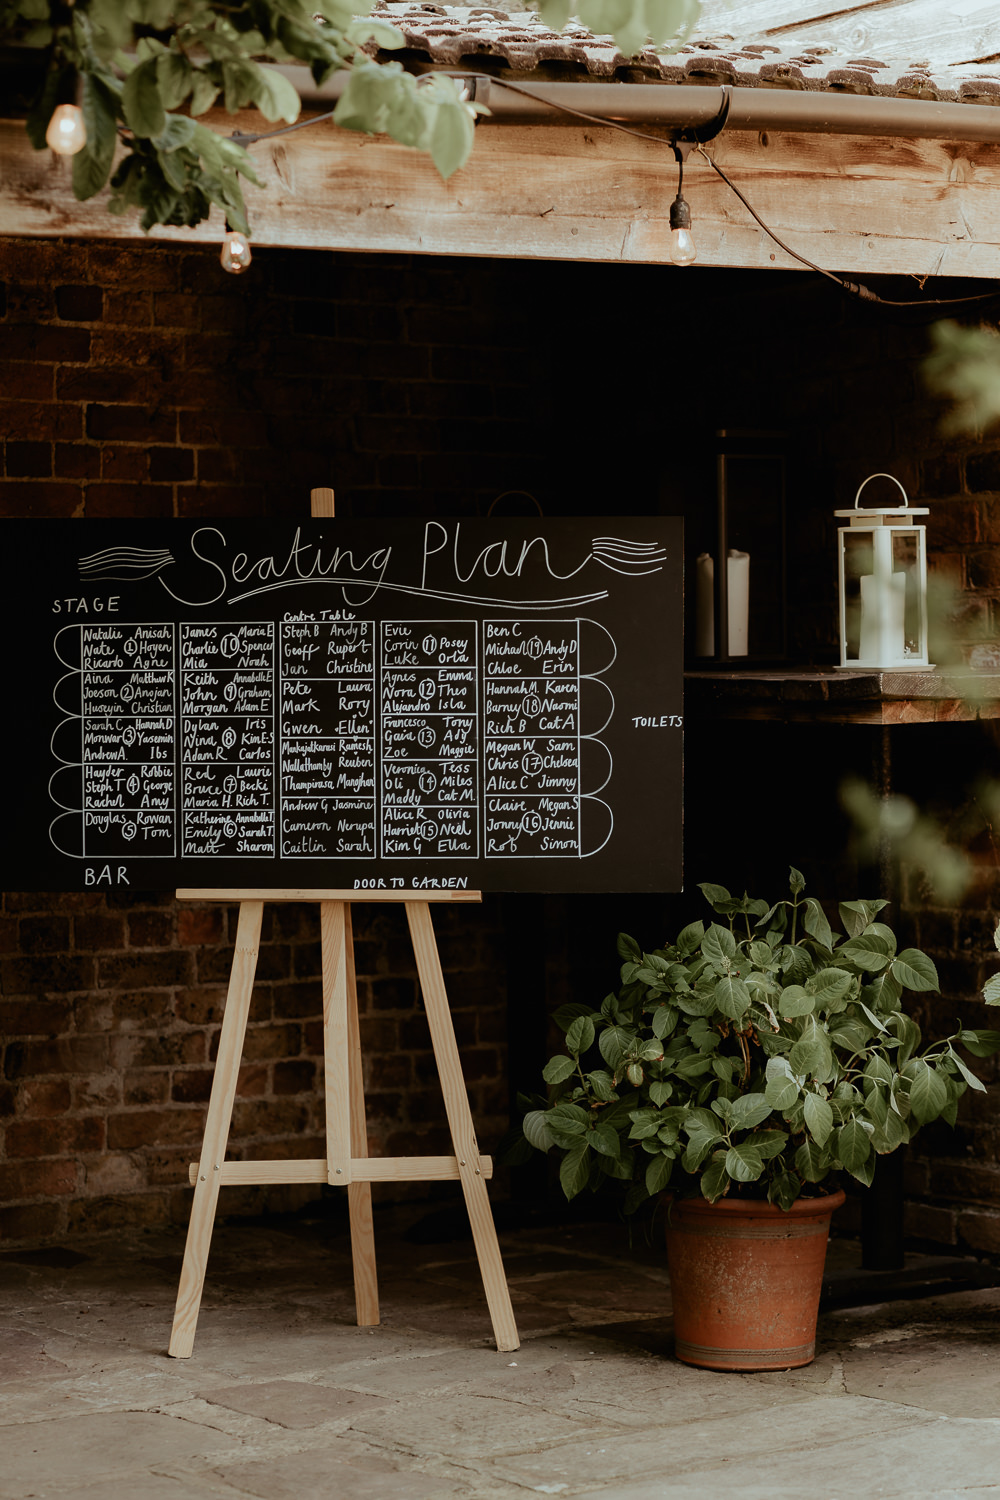 Seating Plan
STAGE
Natalie Anisah
Nate 1 Hoyen
Ricardo Agne
Aina Matthew K
Joeson 2 Anojan
Huseyin Christian
Sarah C Hannah D
Monwar 3 Yasemin
Andrew A. Ibs
Hayder Robbie
Steph T 4 George
Rachel Amy
Douglas Rowan
5 Tom
James Maria E
Charlie 10 Spencer
Mia Noah
Keith Annabelle E
John 9 Graham
Morgan Adam E
Dylan Iris
Nina 8 Kim E-S
Adam R Carlos
Red Laurie
Bruce 7 Becki
Maria H. Rich T.
Katherine Annabelle T.
Emily 6 Sarah T.
Matt Sharon
Centre Table
Steph B Andy B
Geoff Rupert
Jan Christine
Pete Laura
Mark Rory
Gwen Ellen
Mankajatkarasi Ramesh
Nallathamby Reuben
Thampirasa Manghan
Andrew G Jasmine
Cameron Nerupa
Caitlin Sarah
Evie
Corin 11 Posey
Luke Orla
Agnes Emma
Nora 12 Theo
Alejandro Isla
Francesco Tony
Gaia 13 Ady
Zoe Maggie
Veronica Tess
Oli 14 Miles
Maddy Cat M.
Alice R Olivia
Harriet 15 Neel
Kim G Ella
Ben C
Michael 19 Andy D
Chloe Erin
Hannah M. Karen
Barney 18 Naomi
Rich B Cat A
Megan W Sam
Chris 17 Chelsea
Alice C Jimmy
Claire Megan S
Jonny 16 Jennie
Rob Simon
TOILETS
BAR
DOOR TO GARDEN